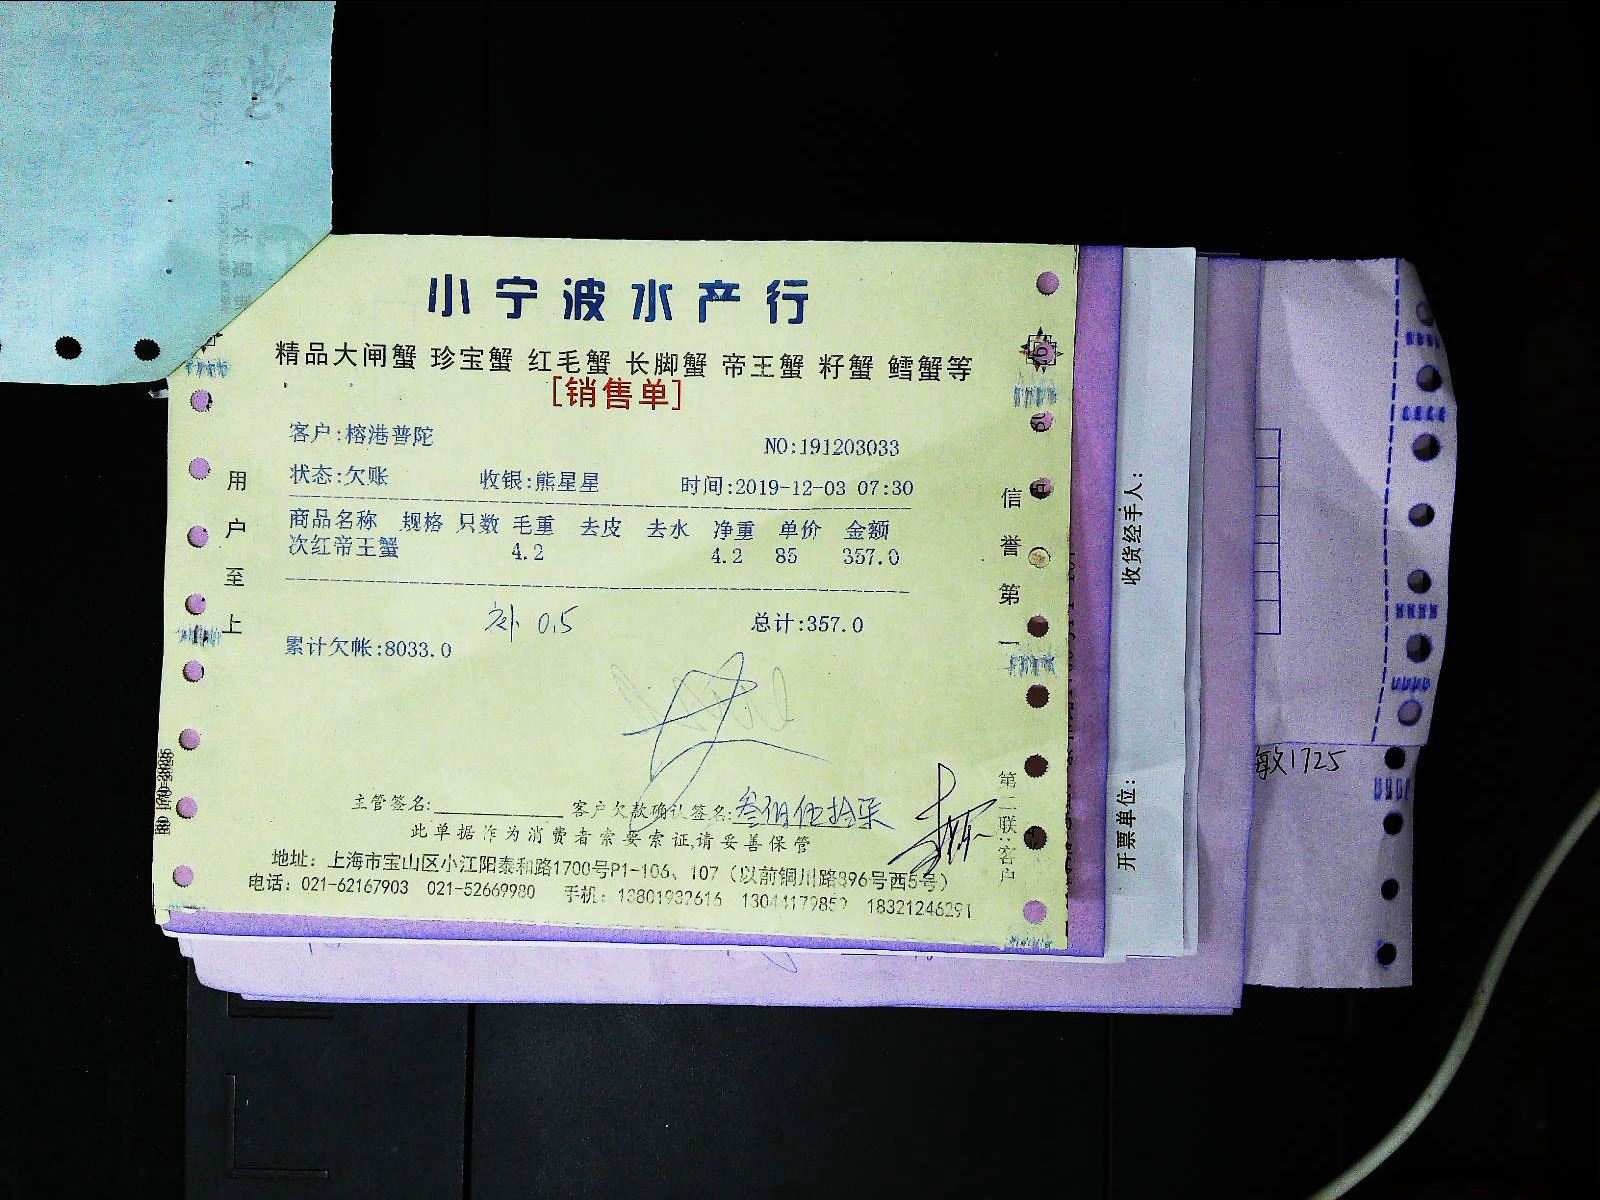 小宁波水产行
精品大闸蟹 珍宝蟹 红毛蟹 长脚蟹 帝王蟹 籽蟹 鳕蟹等
[销售单]
客户:榕港普陀 NO:191203033
状态:欠账 收银:熊星星 时间:2019-12-03 07:30
商品名称 规格 只数 毛重 去皮 去水 净重 单价 金额
次红帝王蟹 4.2 4.2 85 357.0
补 0.5 总计:357.0
累计欠帐:8033.0
主管签名: 客户欠款确认签名:叁佰伍拾柒
此单据作为消费者索要索证,请妥善保管
地址：上海市宝山区小江阳泰和路1700号P1-106、107（以前铜川路896号西5号）
电话：021-62167903 021-52669980 手机：13801932616 13044179859 18321246291
用户至上
信誉第一
第二联:客户
收货经手人:
开票单位:
敏1725